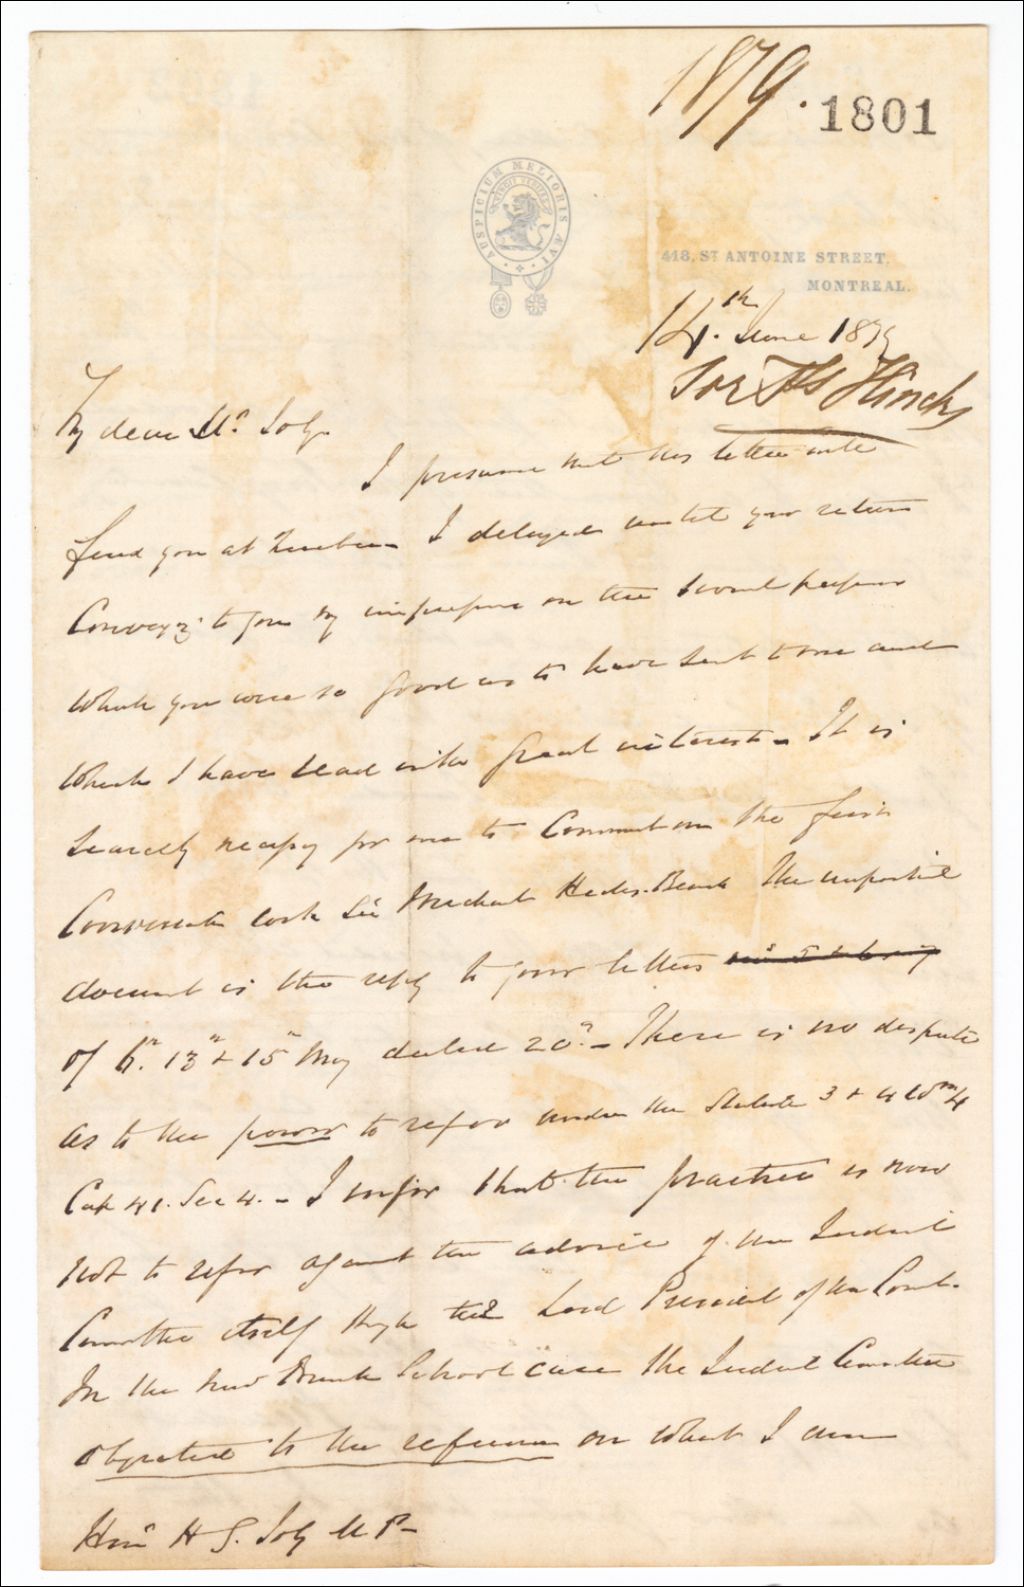 1879.
1801
AUSPICIUM MELIORIS ÆVI
418, ST ANTOINE STREET,
MONTREAL.
14th June 1879
Sir Fs Hincks
My dear Mr Joly
I presume that this letter will
find you at Quebec I delayed until your return
Conveying to you my on the several papers
which you were so good as to have sent to me and
which I have read with great interest - It is
scarcely for me to Comment on the
Sir Hicks Beach The important
document is the reply to your letters
of 6th 13th & 15th May dated 20th - There is no dispute
as to the power to refer under the Statute 3 & 4 Wm 4
Cap 41. Sec 4. - I infer that the practice is now
not to refer against the advice of the Judicial
Committee itself through the Lord President of the Council.
In the New Brunswick School case the Judicial Committee
objected to the reference on what I am
Honl H G. Joly M P -